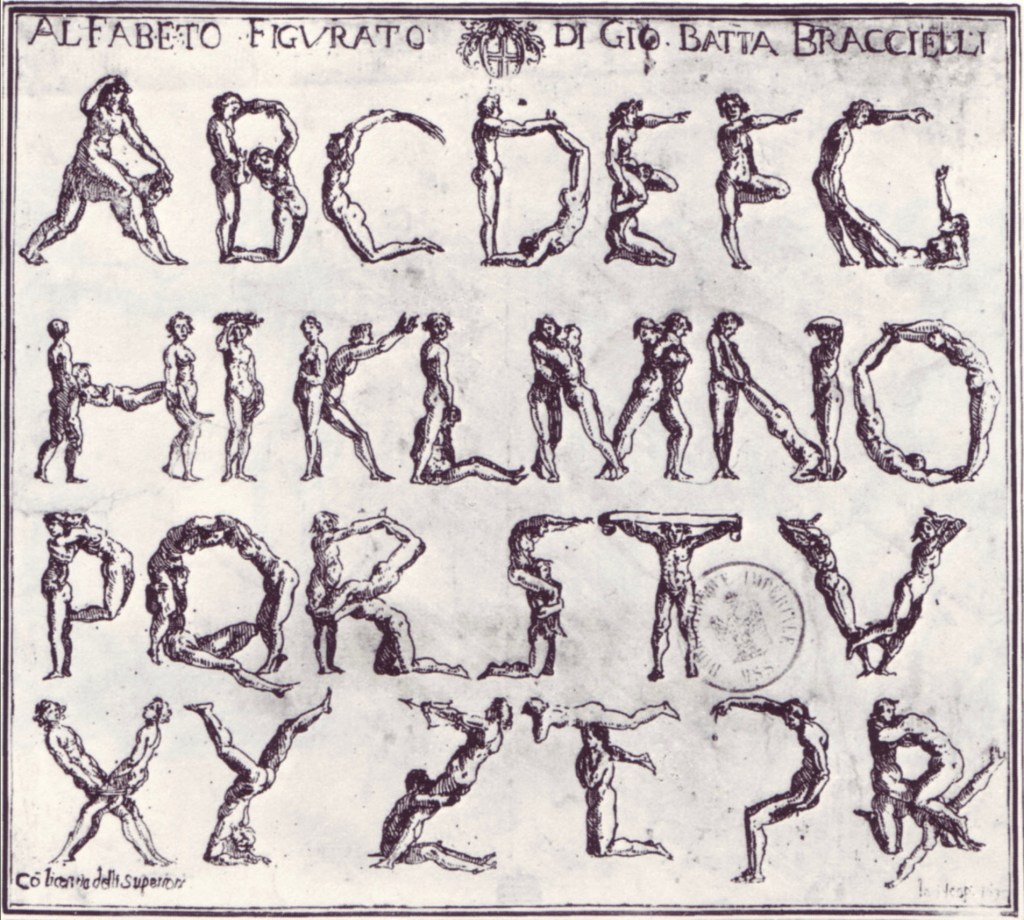 ALFABETO FIGVRATO DI GIO. BATTA BRACCIELLI
A B C D E F G
H I K L M N O
P Q R S T V
X Y Z
Cō licentia delli superiori